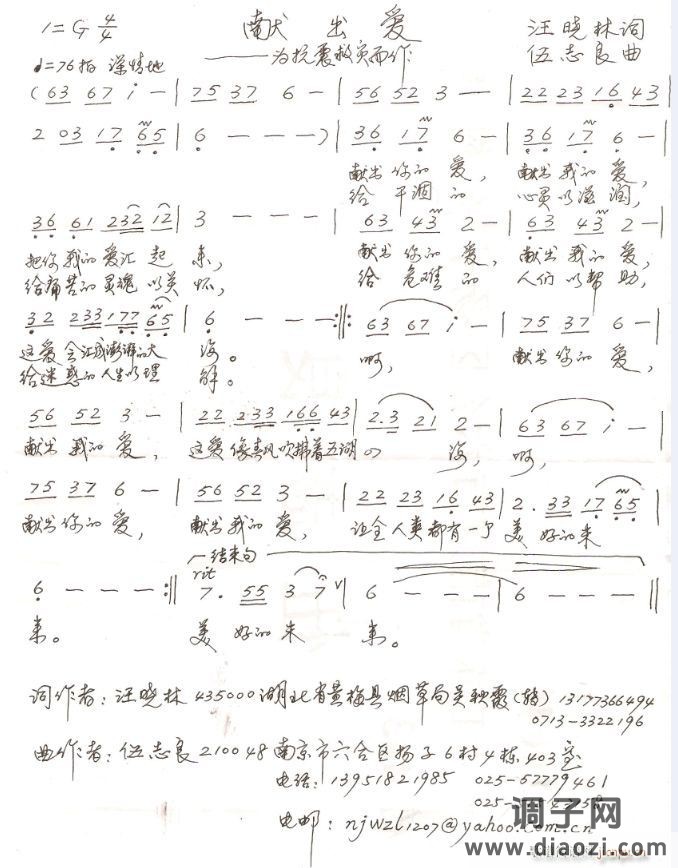 1=G 4/4 献出爱 汪晓林词
——为抗震救灾而作 伍志良曲
♩=76拍 深情地
( 63 67 i - | 75 37 6 - | 56 52 3 — | 22 23 16 43 |
2 03 17 65 | 6 - - - ) | 36 17 6 - | 36 17 6 - |
献出你的爱, 献出我的爱,
给干涸的 心灵以滋润,
36 61 232 12 | 3 - - - | 63 43 2 - | 63 43 2 - |
把你我的爱汇起来, 献出你的爱, 献出我的爱,
给痛苦的灵魂以关怀, 给危难的 人们以帮助,
32 233 177 65 | 6 - - - :||: 63 67 i - | 75 37 6 - |
这爱会汇成澎湃的大海。 啊, 献出你的爱,
给迷惑的人生以理解。
56 52 3 - | 22 233 166 43 | 2.3 21 2 - | 63 67 i - |
献出我的爱, 这爱像春风吹拂着五湖 海, 啊,
75 37 6 - | 56 52 3 - | 22 23 16 43 | 2. 33 17 65 |
献出你的爱, 献出我的爱, 让全人类都有一个美好的未
结束句
rit
6 - - - :|| 7. 55 3 7 ∨ | 6 - - - | 6 - - - ||
来。 美好的未来。
词作者: 汪晓林 435000 湖北省黄梅县烟草局吴秋霞(转) 13177366494
0713-3322196
曲作者: 伍志良 210048 南京市六合区扬子6村4栋403室
电话: 13951821985 025-57779461
025-
电邮: njwzl1207@yahoo.com.cn
调子网
www.diaozi.com